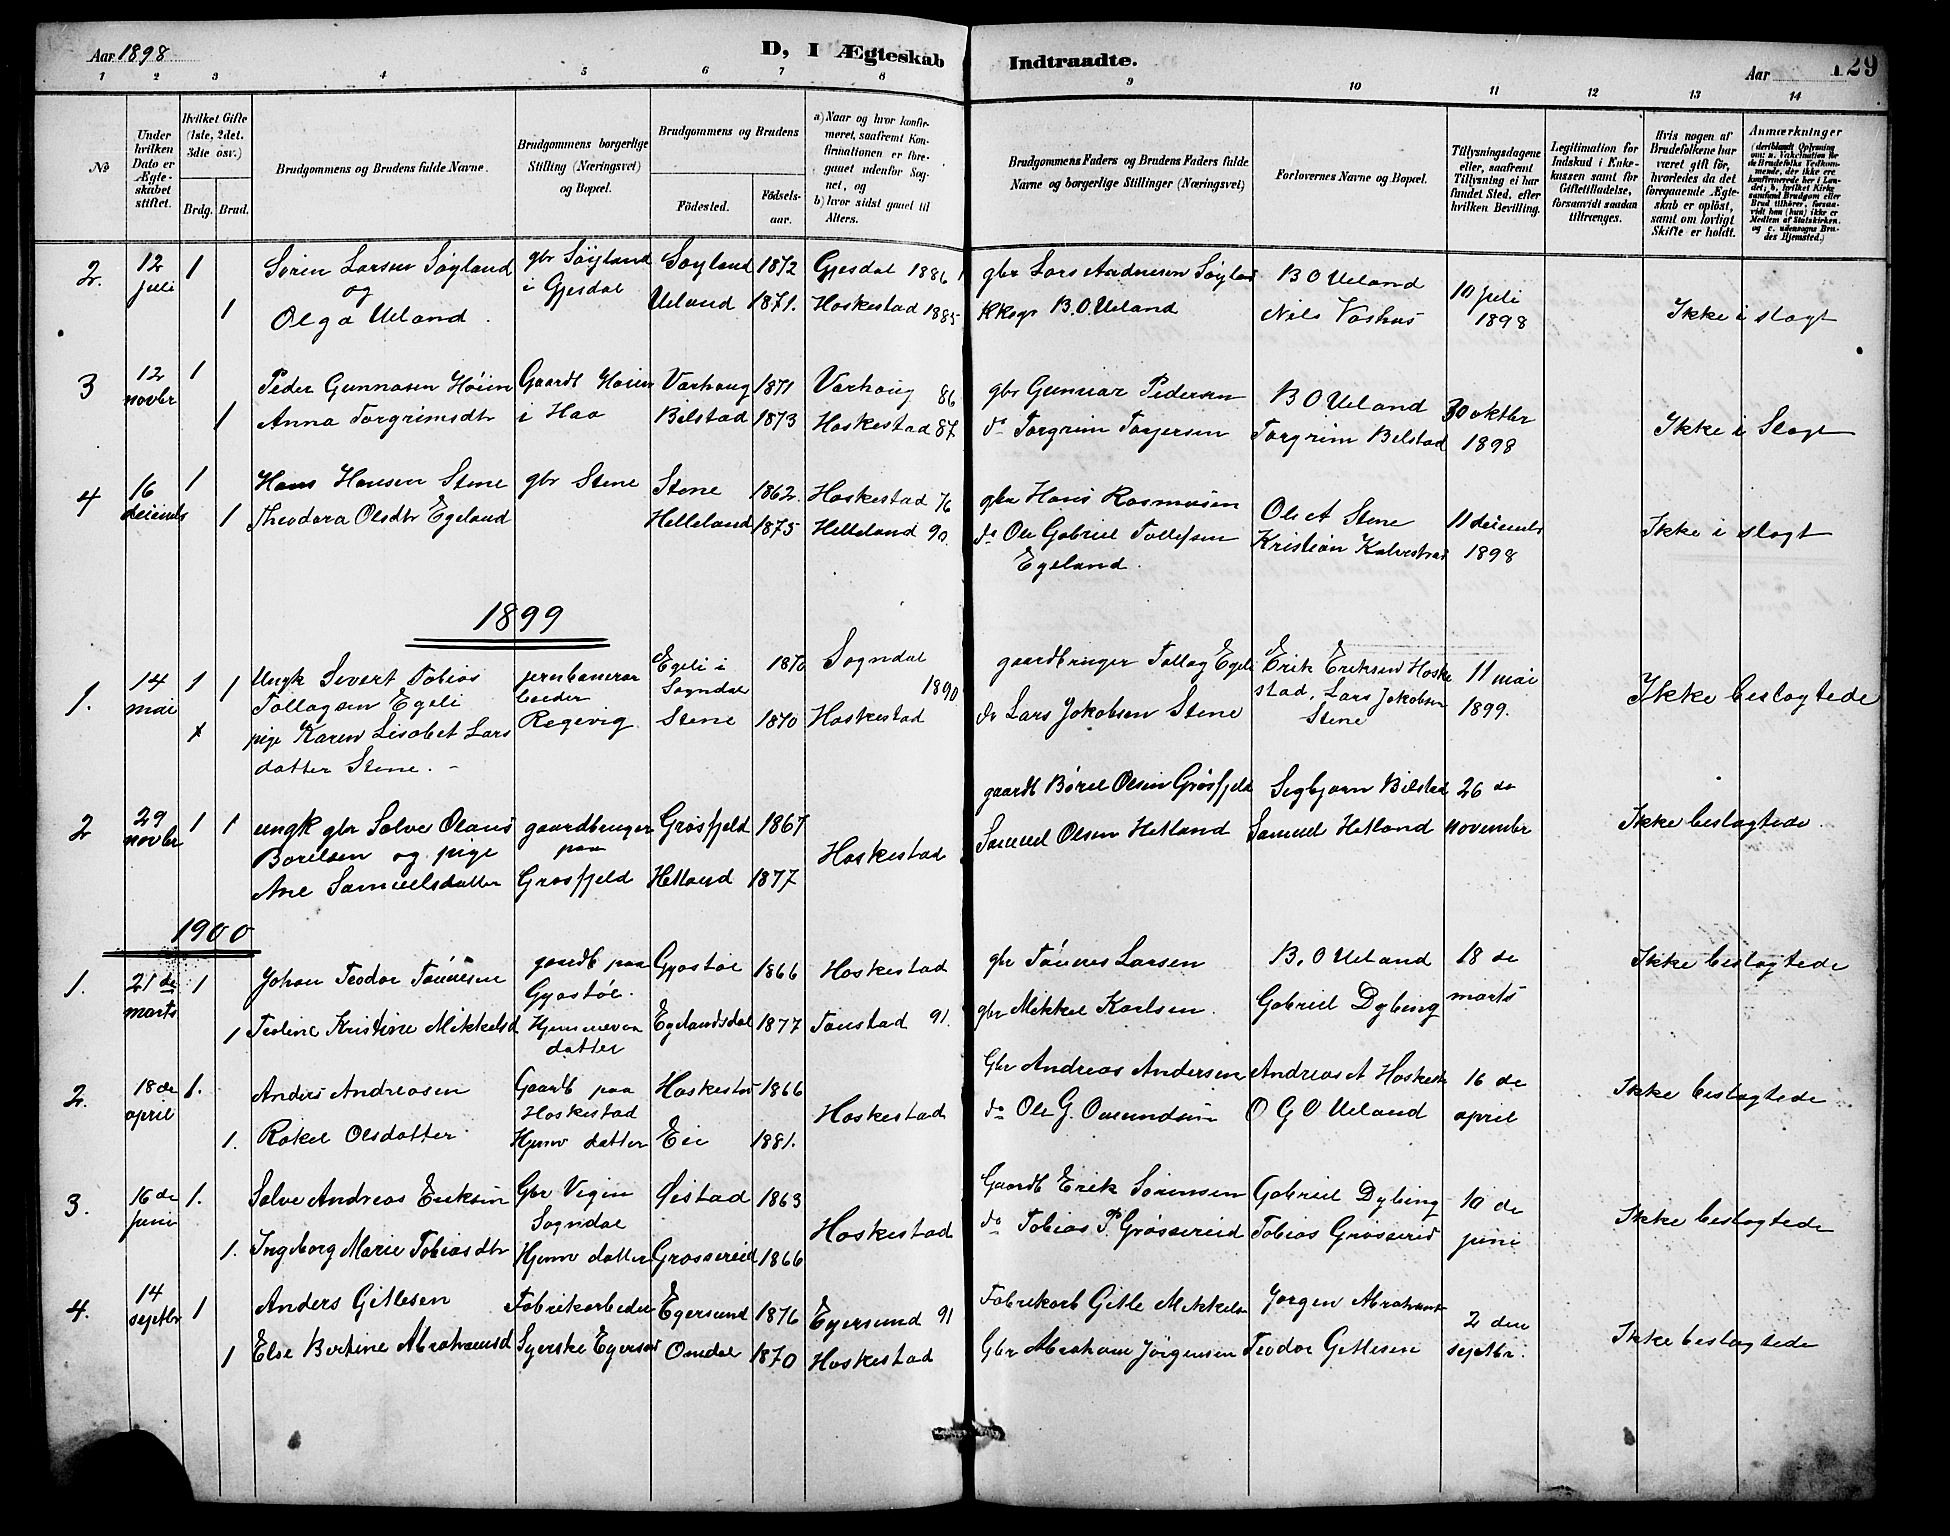 Aar 1898
D, I Ægteskab Indtraadte.
Aar 129
1 2 3 4 5 6 7 8 9 10 11 12 13 14
No
Under hvilken Dato er Ægteskabet stiftet.
Hvilket Gifte (1ste, 2det, 3die osv.)
Brdg. Brud.
Brudgommens og Brudens fulde Navne.
Brudgommens borgerlige Stilling (Næringsvei) og Bopæl.
Brudgommens og Brudens
Fødested. Fødselsaar.
a) Naar og hvor konfirmeret, saafremt Konfirmationen er foregaaet udenfor Sognet, og
b) hvor sidst gaaet til Alters.
Brudgommens Faders og Brudens Faders fulde Navne og borgerlige Stillinger (Næringsvei)
Forlovernes Navne og Bopæl.
Tillysningsdagene eller, saafremt Tillysning ei har fundet Sted, efter hvilken Bevilling.
Legitimation for Indskud i Enkekassen samt for Giftetilladelse, forsaavidt saadan tiltrænges.
Hvis nogen af Brudefolkene har været gift før, hvorledes da det foregaaende Ægteskab er opløst, samt om lovligt Skifte er holdt.
Anmærkninger (deriblandt Oplysning om: a. Vakcination for de Brudefolks Vedkommende, der ikke ere konfirmerede her i Landet; b. hvilket Kirkesamfund Brudgom eller Brud tilhører, forsaavidt han (hun) ikke er Medlem af Statskirken, og c. udensogns Brudes Hjemsted.)
2. 12 juli 1 Søren Larsen Søyland gbr Søyland Søyland 1872 Gjesdal 1886 gbr Lars Andresen B O Ueland 10 juli
og i Gjesdal
1 Olga Ueland Ueland 1871. Hoskestad 1885 B. O. Ueland Nils 1898 Ikke i slægt
3 12 novbr 1 Peder Gunnarsen Høien Gaardb Høien Varhaug 1871 Varhaug 86 gbr Gunnar Pedersen B O Ueland 30 oktbr
1 Anna Torgrimsdtr i Haa Bilstad 1873 Hoskestad 87 do Torgrim Torjersen Torgrim Bilstad 1898 Ikke i Slægt
4 16 1 Hans Hansen Stene gbr Stene Stene 1862. Hoskestad 76 gbr Hans Rasmusen Ole A Stene 11
1 Theodora Olsdtr Egeland Helleland 1875 Helleland 90. do Ole Gabriel Tollefsen Kristian 1898 Ikke i slægt
Egeland.
1899
1. 14 mai 1 1 Ungk Sivert Tobias Egeli i 1870 Sogndal gaardbruger Tollag Egeli Erik Eriksen Hoske 11 mai
Tollagsen Egeli Sogndal 1890 stad, Lars Jokobsen 1899.
pige Karen Lisabet Lars Regevig Stene 1870 Hoskestad do Lars Jokobsen Stene Stene Ikke beslægtede
datter Stene. -
2 29 novbr 1 1 ungk gbr Salve Olaus gaardbruger Grøsfjeld 1867 gaardb Børel Olsen Grøsfjeld Segbjørn Bilstad 26 de
Borelsen og pige paa Hoskestad Samuel Olsen Hetland Samuel Hetland november Ikke beslægtede.
Ane Samuelsdatter Grøsfjeld Hetland 1877
1900
1. 21 de marts 1 Johan Teodor Tønnesen gaardb paa Gyastøl 1866 Hoskestad gbr Tønnes Larsen B. O Ueland 18 de Ikke beslægtede
Gyastøl.
1 Teoline Kristine Mikkelsd Hjemmev datter Egelandsdal 1877 Tonstad 91. gbr Mikkel Karlsen. Gabriel Dybing marts
2. 18 de april 1. Anders Andreasen Gaardb paa Hoskestad Hoskestad 1866 Gbr Andreas Andersen Andreas A 16 de
1. Rakel Olsdatter Hjemv datter Eie 1881. Hoskestad do Ole G. Omundsen O G O Ueland april Ikke beslægtede
3. 16 de juni 1. Salve Andreas Eriksen Gbr Vegin Sogndal Øistad 1863 Gaardb Erik Sørensen Gabriel Dybing 10 de
1. Ingeborg Marie Tobiasdtr Hjemv datter Grøssereid 1866 Hoskestad do Tobias P. Grøssereid Tobias Grøssereid juni Ikke beslægtede
4. 14 septbr 1 Anders Gitlesen Fabrikarbeider Egersund 1876 Egersund 91 Fabrikarb Gitle Mikkelsn Jørgen 2 den
1 Else Bertine Abrahamsd Syerske Omdal 1870 Hoskestad Gbr Abraham Jørgensen Teodor Gitlesen septbr. Ikke beslægtede